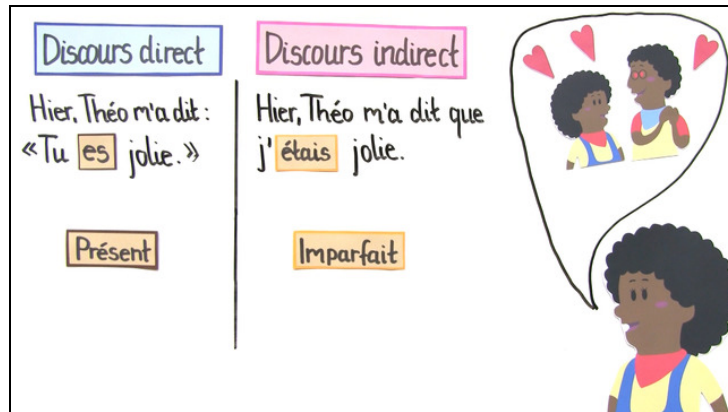 Discours direct
Hier, Théo m'a dit :
«Tu es jolie.»
Présent
Discours indirect
Hier, Théo m'a dit que
j'étais jolie.
Imparfait